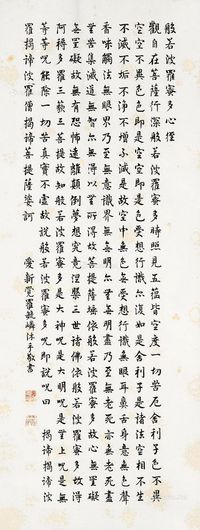 般若波羅蜜多心經
觀自在菩薩行深般若波羅蜜多時照見五蘊皆空度一切苦厄舍利子色不異
空空不異色色即是空空即是色受想行識亦復如是舍利子是諸法空相不生
不滅不垢不淨不增不減是故空中無色無受想行識無眼耳鼻舌身意無色聲
香味觸法無眼界乃至無意識界無無明亦無無明盡乃至無老死亦無老死盡
無苦集滅道無智亦無得以無所得故菩提薩埵依般若波羅蜜多故心無罣礙
無罣礙故無有恐怖遠離顛倒夢想究竟涅槃三世諸佛依般若波羅蜜多故得
阿耨多羅三藐三菩提故知般若波羅蜜多是大神咒是大明咒是無上咒是無
等等咒能除一切苦真實不虛故說般若波羅蜜多咒即說咒曰 揭諦揭諦波
羅揭諦波羅僧揭諦菩提薩婆訶
愛新覺羅毓嶙沐手敬書